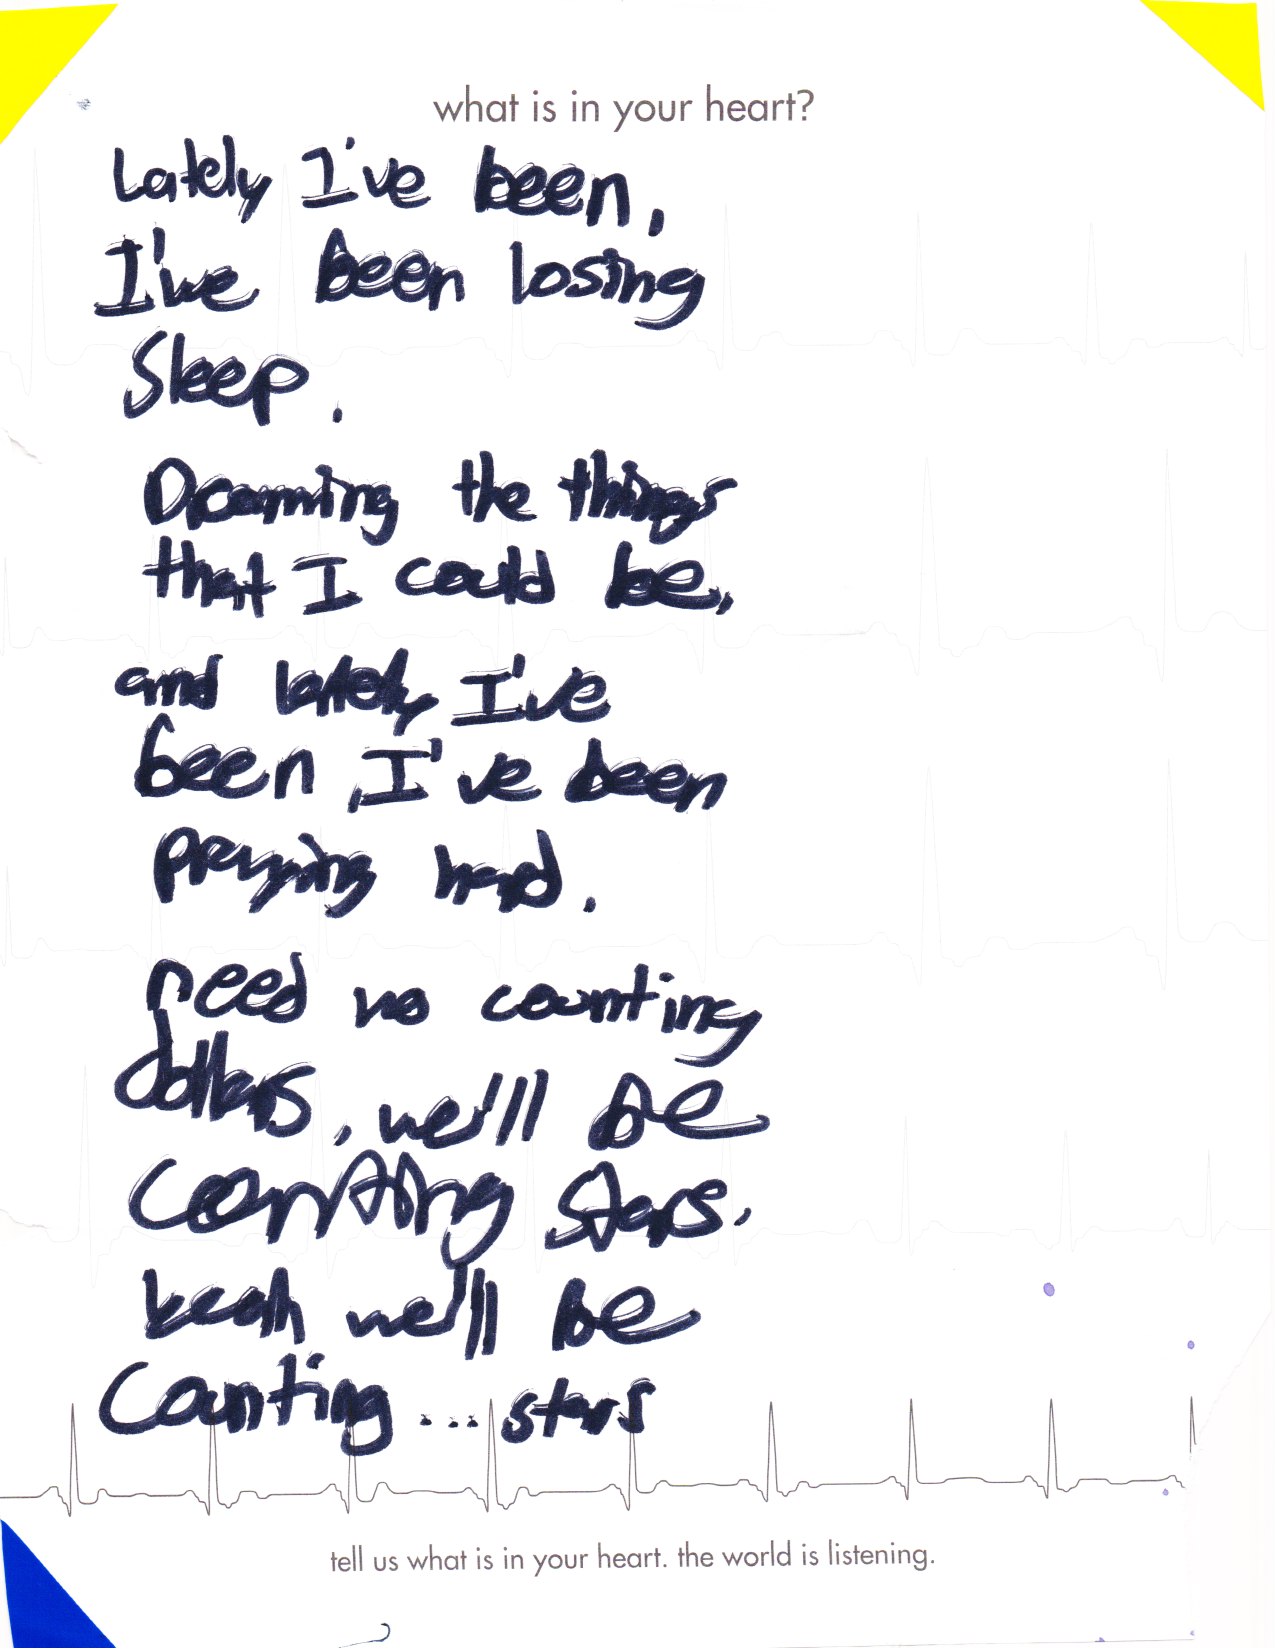 what is in your heart?
Lately I've been,
I've been losing
Sleep.
Dreaming the things
that I could be,
and lately I've
been, I've been
praying hard.
need no counting
dollars, we'll be
counting stars.
yeah we'll be
Counting... stars
tell us what is in your heart. the world is listening.